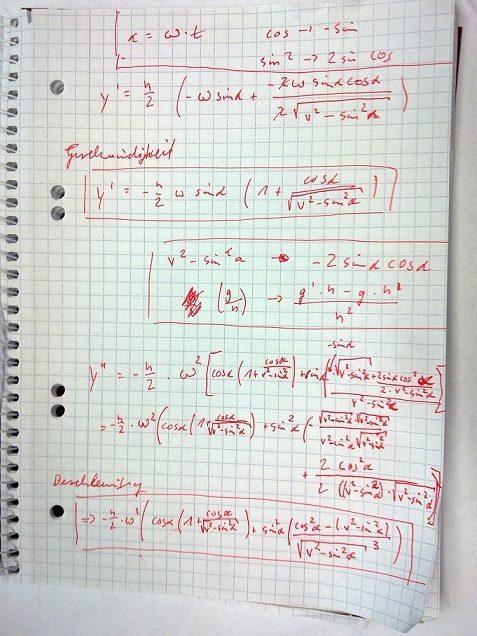 α = ω · t cos → -sin
sin² → 2 sin cos
y' = h/2 ( -ω sinα + (-2ω sinα cosα)/(2 √(v² - sin²α)) )
Geschwindigkeit
y' = - h/2 ω sinα ( 1 + cosα/√(v² - sin²α) )
v² - sin²α → -2 sinα cosα
(g/h) → (g' · h - g · h²)/h²
y'' = - h/2 · ω² [ cosα ( 1 + cosα/√(v² - sin²α) ) + sinα
-sinα √(v² - sin²α) + 2 sinα cos²α
2 · √(v² - sin²α)
v² - sin²α
= - h/2 · ω² ( cosα ( 1 + cosα/√(v² - sin²α) ) + sin²α ( - (√(v² - sin²α) · √(v² - sin²α))/(v² - sin²α √(v² - sin²α))
+ (2 cos²α)/(2 (v² - sin²α) · √(v² - sin²α))
Beschleunigung
⇒ - h/2 · ω² ( cosα ( 1 + cosα/√(v² - sin²α) ) + sin²α ( (cos²α - (v² - sin²α))/√(v² - sin²α)³ ) )